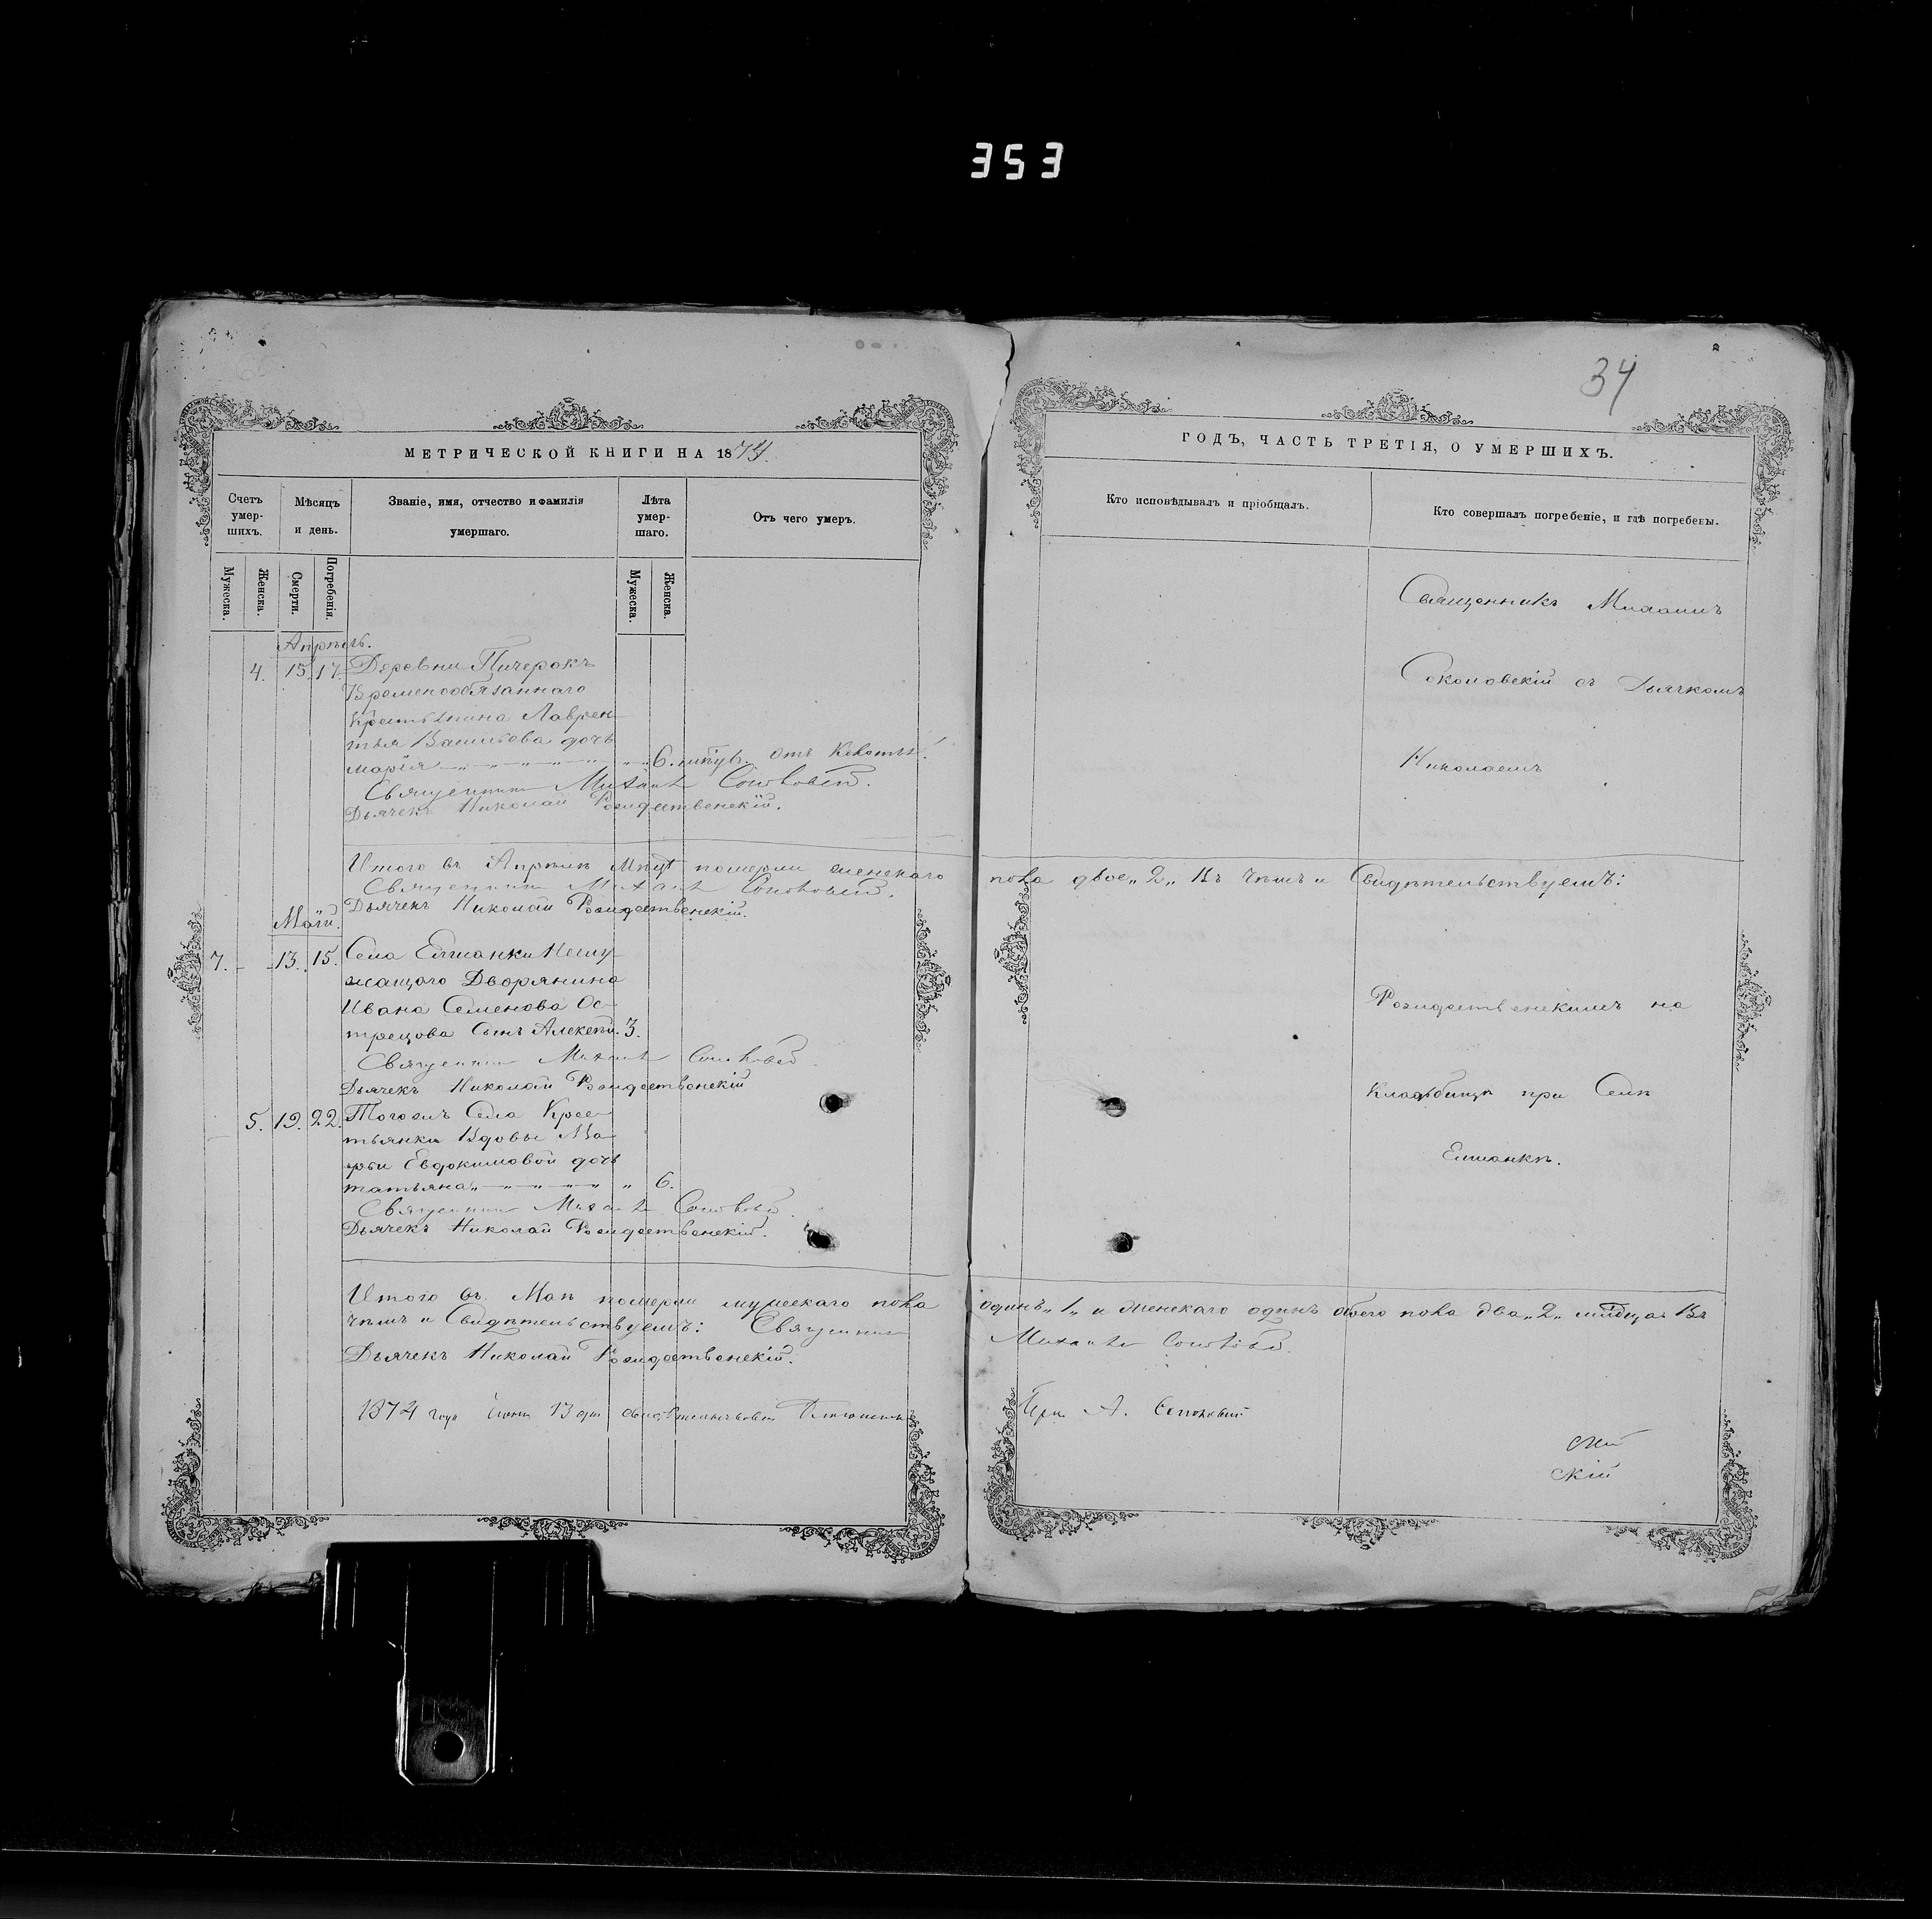 353
34
МЕТРИЧЕСКОЙ КНИГИ НА 1874.
ГОДЪ, ЧАСТЬ ТРЕТІЯ, О УМЕРШИХЪ.
Счетъ умер-шихъ.
Мѣсяцъ и день.
Званіе, имя, отчество и фамилія умершаго.
Лѣта умер-шаго.
Отъ чего умеръ.
Кто исповѣдывалъ и пріобщалъ.
Кто совершалъ погребеніе, и гдѣ погребены.
Мужеска.
Женска.
Смерти.
Погребенія.
Мужеска.
Женска.
Апрѣль.
4. 15. 17. Деревни Пичерокъ
Временнообязаннаго
Крестьянина Лаврен-
тья Васильева дочь
Марія 6. отъ
Священникъ Михаилъ Соколовскій.
Дьячекъ Николай Рождественскій.
Итого въ Апрѣлѣ Мцѣ померли женскаго
пола двое „2„ Въ чемъ и Свидѣтельствуемъ:
Священникъ Михаилъ Соколовскій.
Дьячекъ Николай Рождественскій.
Маій.
7. 13. 15. Села Елшанки Неслу-
жащаго Дворянина
Ивана Семенова Ос-
трецова Сынъ Алексѣй. 3.
Священникъ Михаилъ Соколовскій
Дьячекъ Николай Рождественскій
5. 19. 22. Тогожъ Села Крес-
тьянки Вдовы Ма-
рьи Евдокимовой дочь
Татьяна 6.
Священникъ Михаилъ Соколовскій.
Дьячекъ Николай Рождественскій.
Священникъ Михаилъ
Соколовскій съ Дьячкомъ
Николаемъ
Рождественскимъ на
Кладбищѣ при Селѣ
Елшанкѣ.
Итого въ Маѣ померли мужескаго пола
одинъ „1„ и женскаго одинъ обоего пола два „2„ Въ
чемъ и Свидѣтельствуемъ: Священникъ
Михаилъ Соколовскій.
Дьячекъ Николай Рождественскій.
1874 года 13 дня
А.
скій